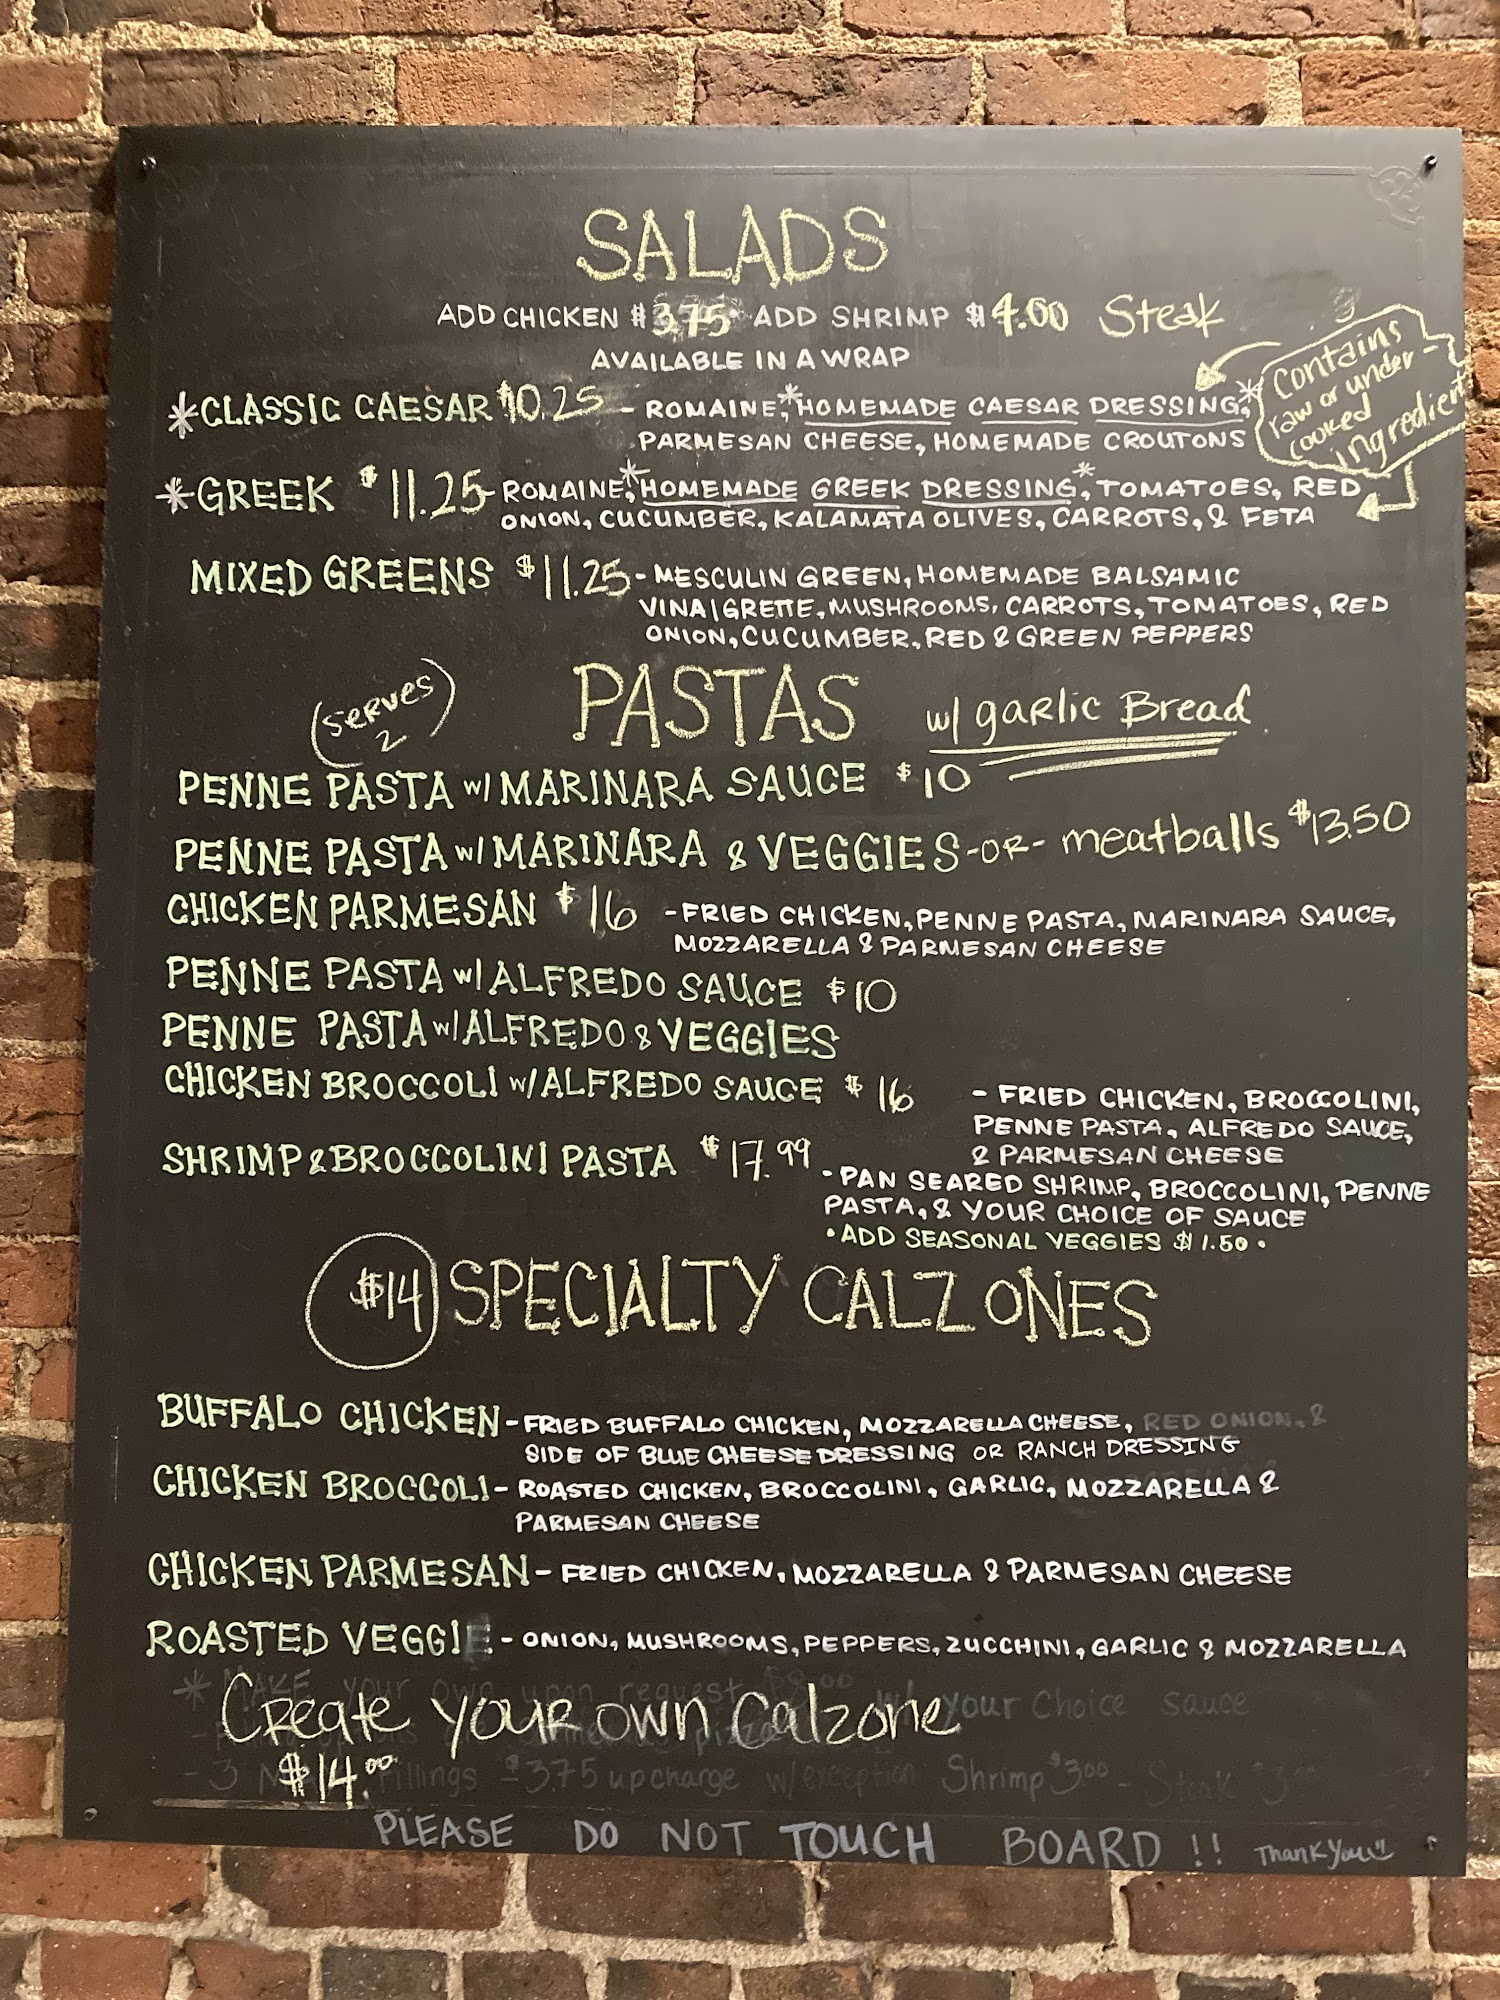 SALADS
ADD CHICKEN $3.75 ADD SHRIMP $4.00 Steak
AVAILABLE IN A WRAP
*Contains
raw or under-
cooked
ingredient
*CLASSIC CAESAR $10.25 - ROMAINE, *HOMEMADE CAESAR DRESSING,*
PARMESAN CHEESE, HOMEMADE CROUTONS
*GREEK $11.25 - ROMAINE, *HOMEMADE GREEK DRESSING*, TOMATOES, RED
ONION, CUCUMBER, KALAMATA OLIVES, CARROTS, & FETA
MIXED GREENS $11.25 - MESCULIN GREEN, HOMEMADE BALSAMIC
VINAIGRETTE, MUSHROOMS, CARROTS, TOMATOES, RED
ONION, CUCUMBER, RED & GREEN PEPPERS
(serves
2)
PASTAS w/ garlic Bread
PENNE PASTA w/ MARINARA SAUCE $10
PENNE PASTA w/ MARINARA & VEGGIES -OR- meatballs $13.50
CHICKEN PARMESAN $16 - FRIED CHICKEN, PENNE PASTA, MARINARA SAUCE,
MOZZARELLA & PARMESAN CHEESE
PENNE PASTA w/ ALFREDO SAUCE $10
PENNE PASTA w/ ALFREDO & VEGGIES
CHICKEN BROCCOLI w/ ALFREDO SAUCE $16 - FRIED CHICKEN, BROCCOLINI,
PENNE PASTA, ALFREDO SAUCE,
& PARMESAN CHEESE
SHRIMP & BROCCOLINI PASTA $17.99 - PAN SEARED SHRIMP, BROCCOLINI, PENNE
PASTA, & YOUR CHOICE OF SAUCE
• ADD SEASONAL VEGGIES $1.50 •
$14 SPECIALTY CALZONES
BUFFALO CHICKEN - FRIED BUFFALO CHICKEN, MOZZARELLA CHEESE, RED ONION, &
SIDE OF BLUE CHEESE DRESSING OR RANCH DRESSING
CHICKEN BROCCOLI - ROASTED CHICKEN, BROCCOLINI, GARLIC, MOZZARELLA &
PARMESAN CHEESE
CHICKEN PARMESAN - FRIED CHICKEN, MOZZARELLA & PARMESAN CHEESE
ROASTED VEGGIE - ONION, MUSHROOMS, PEPPERS, ZUCCHINI, GARLIC & MOZZARELLA
* MAKE your own upon request $8.00 w/ your choice sauce
Create your own Calzone
pizza
$14.00
- 3 fillings $3.75 upcharge w/ exception Shrimp $3.00 - Steak $3
PLEASE DO NOT TOUCH BOARD!! Thank You